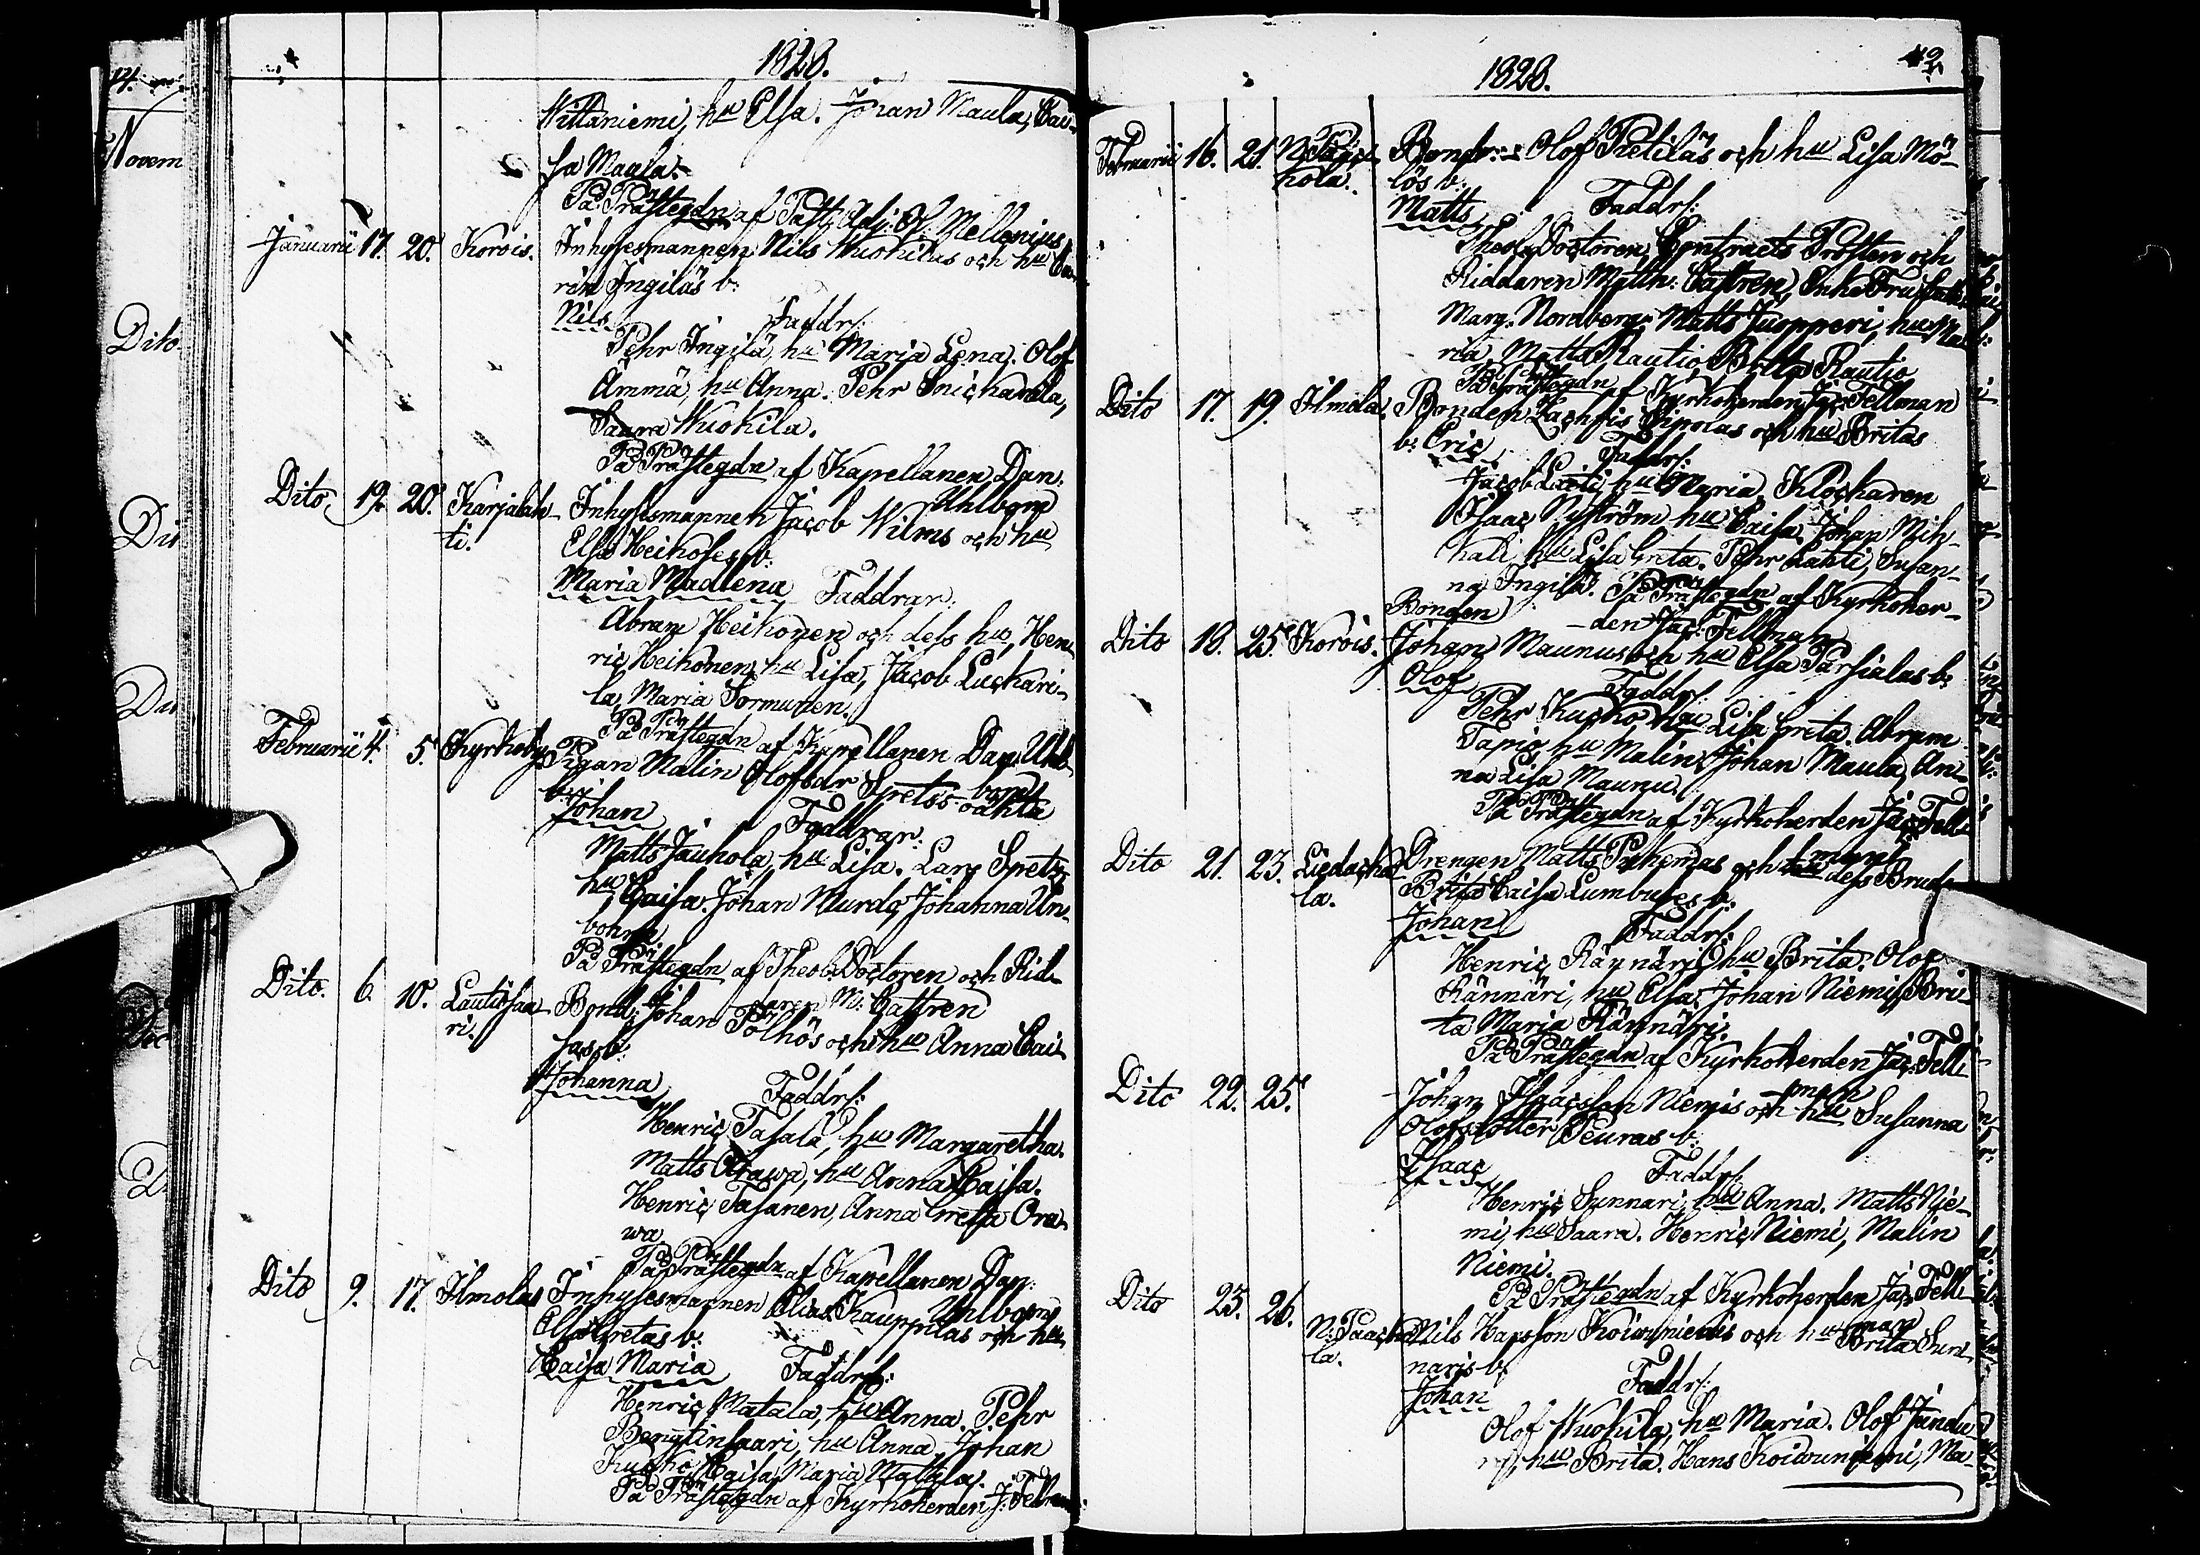 1828.
Wittaniemi, hu Elsa. Johan Maula, Cai-
sa Maula.
På Prästegdn af Past: Adj: Ol. Mellenius
Januarii 17. 20. Korois. Inhysesmannen Nils Wuokilas och hu Ca-
rin Ingiläs b:
Nils Faddr:
Pehr Ingilä, hu Maria Lena. Olof
Ämmä, hu Anna. Pehr Snickarela,
Saara Wuokila.
På Prästegdn af Kapellanen Dan.
Uhlbom
Dito 19. 20. Karjalah- Inhysesmannen Jacob Wilms och hu
ti. Elsa Heikoses b:
Maria Madlena Faddrar:
Abram Heikonen och dess hu, Hen-
ric Heikonen, hu Lisa, Jacob Luckari-
la, Maria Sormunen.
På Prästegdn af Kapellanen Dan Uhl-
bom
Februarii 4. 5. Kyrkoby. Pigan Malin Olofsdr Spetss oächta
b:
Johan Faddrar:
Matts Jauhola, hu Lisa. Lars Spets,
hu Caisa. Johan Murdo, Johanna Un-
bohm
På Prästegdn af Theol: Doctoren och Rid-
daren M: Castren
Dito. 6. 10. Lautiosaa- Bond: Johan Pölhös och hu Anna Cai-
ri. sas b:
Johanna Faddr:
Henric Tasala, hu Margaretha.
Matts Orawa, hu Anna Caisa.
Henric Tasanen, Anna Greta Ora-
wa
På Prästegdn af Kapellanen Dan:
Uhlbom
Dito 9. 17. Ilmola Inhysesmannen Elias Kauppilas och hu
Elsa Gretas b:
Caisa Maria Faddr:
Henric Matala, hu Anna. Pehr
Bengtinsaari, hu Anna. Johan
Kusko, Caisa Maria Mattila.
På Prästegdn af Kyrkoherden J: Fellman
1828.
42
Februarii 16. 21. N. Paac- Bond: Olof Pietiläs och hu Lisa Mö-
kola. lös b:
Matts Faddr:
Theol: Doctoren, Contracts Prosten och
Riddaren Matth: Castren, Enke Fru
Marg. Nordberg. Matts Juopperi, hu Ma-
ria. Matts Rautio, Brita Rautio
På Prästegdn af Kyrkoherden Jac: Fellman
Dito 17. 19. Ilmola Bonden Zachris Sipolas och hu Britas
b: Eric Faddr:
Jacob Lahti, hu Maria. Klockaren
Isaac Nyström hu Caisa. Johan Mih-
kali, hu Lisa Greta. Pehr Lahti, Susan-
na Ingilä. På Prästegdn af Kyrkoher-
den Jac: Fellman
Dito 18. 25. Korois. Bonden
Johan Maunus och hu Elsa Parsialas b:
Olof Faddr:
Pehr Kusko hu Lisa Greta. Abram
Tapio hu Malin. Johan Maula, An-
na Lisa Maunu.
På Prästegdn af Kyrkoherden Jac: Fell-
man
Dito 21. 23. Liedacka- Drengen Matts Puhemas och dess Brud
la. Brita Caisa Lumbuses b:
Johan Faddr:
Henric Rännäri, hu Brita. Olof
Rännäri, hu Elsa. Johan Niemi, Bri-
ta Maria Rännäri.
På Prästegdn af Kyrkoherden Jac: Fell-
man
Dito 22. 25. Johan Isaacsson Niemis och hu Susanna
Olofsdotter Peuras b:
Isaac Faddr:
Henric Sunnari, hu Anna. Matts Nie-
mi, hu Saara. Henric Niemi, Malin
Niemi.
På Prästegdn af Kyrkoherden Jac: Fell-
man
Dito 23. 26. N. Paacko- Nils Hansson Koiwuniemis och hu Brita Sun-
la. naris b:
Johan Faddr:
Olof Wuokila, hu Maria. Olof
hu Brita. Hans Koiwuniemi, Ma-
Novem
Dito